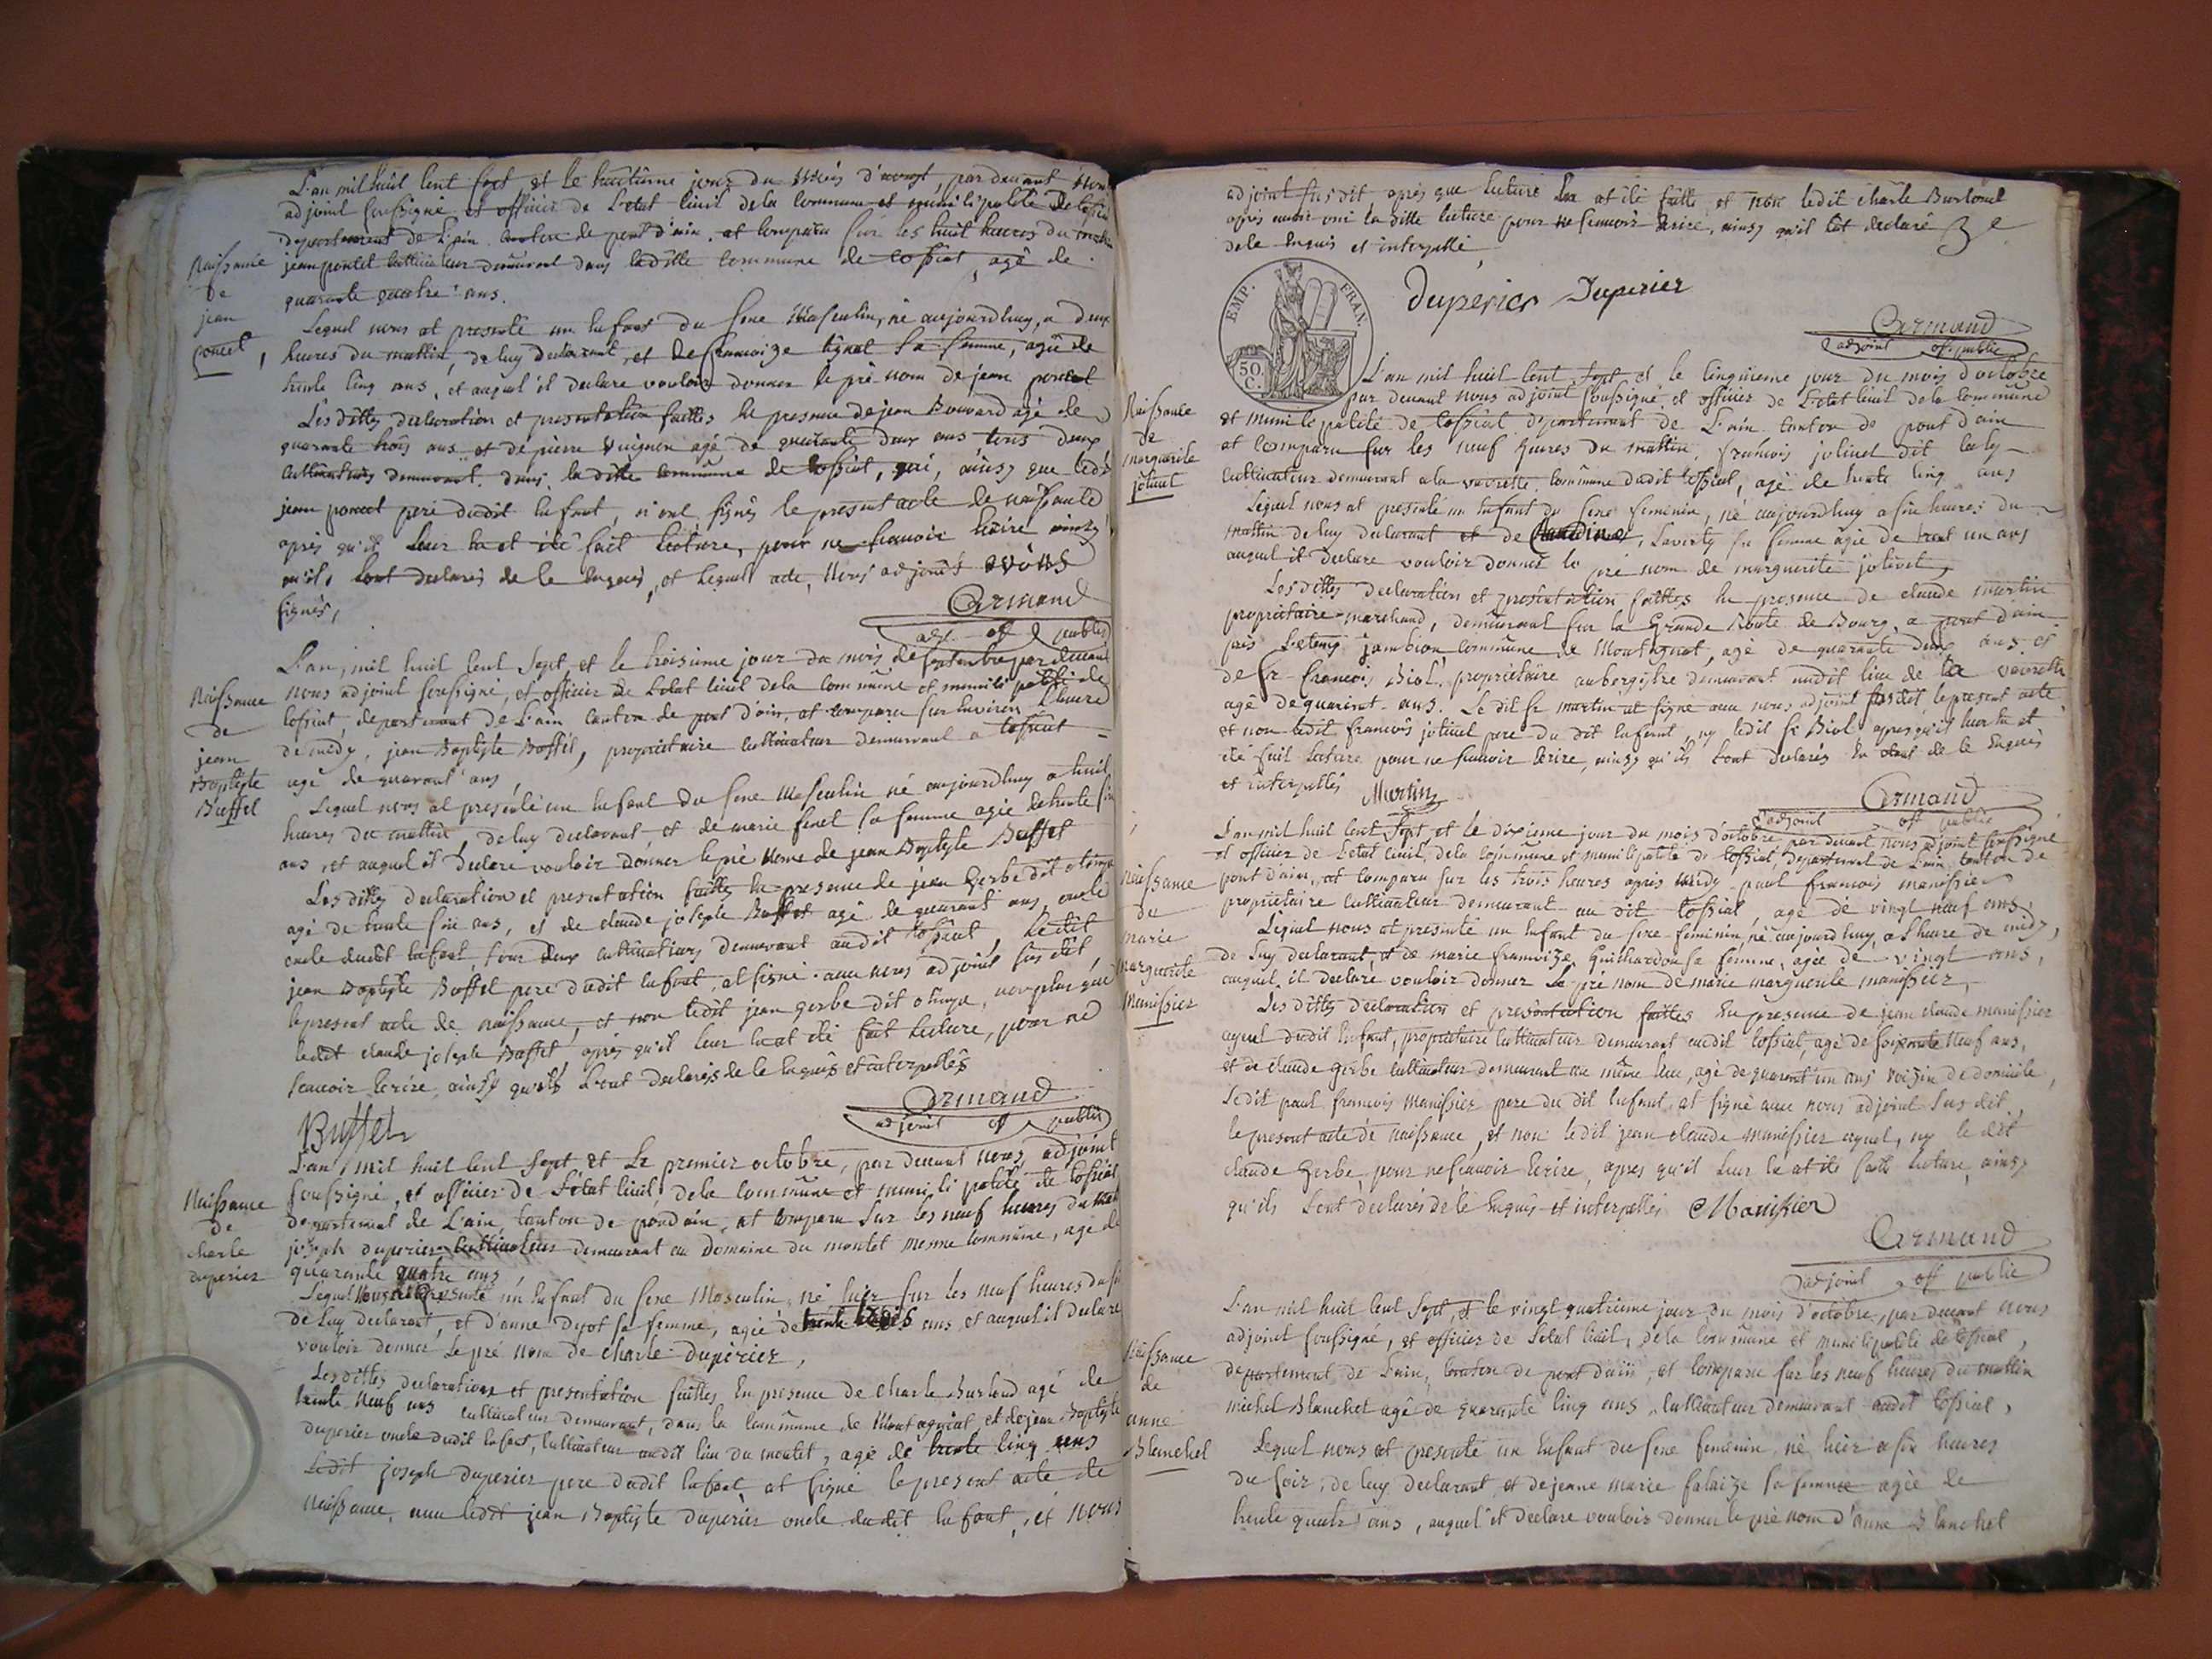 L'an mil huit Cent sept et le huitième jour du Mois d'aoust, par devant Nous
adjoint soussigné et officier de L'etat Civil de la Commune et municipalité de Cossiat
departement de L'ain Canton de pont d'ain, at Comparu sur les huit heures du mattin
jean poncet Cultivateur demeurant dans laditte Commune de Cossiat, agé de
quarante quatre ans.
Naissance
de
jean
poncet
Lequel nous at presenté un Enfant du sexe Masculin, né aujourdhuy, a deux
heures du mattin, de luy declarant et de francoize tignat sa femme, agée de
trente Cinq ans, et auquel il declare vouloir donner le pré nom de jean poncet
Les dittes declaration et presentation faittes En presence de jean Bouvard agé de
quarante trois ans et de pierre Vuignon agé de quarante deux ans tous deux
Cultivateurs demeurant dans la ditte Commune de Cossiat, qui, ainsy que ledit
jean poncet pere dudit Enfant, n'ont signés le present acte de naissance
après qu'il Leur En at été fait lecture, pour ne scavoir Ecrire ainsy
qu'ils Lont declarés de ce Enquis, et Lequel acte, Nous adjoint avons
signés,
Armand
adj. off public
L'an, mil huit Cent Sept et le troisième jour du mois de septembre par devant
nous adjoint soussigné, et officier de Letat Civil de la Commune et municipalité de
Cossiat, departement de L'ain Canton de pont d'ain, at Comparu sur Environ Lheure
de midy, jean Baptiste Buffet, propriétaire Cultivateur demeurant a Cossiat
agé de quarant ans,
Naissance
de
jean
Baptiste
Buffet
Lequel nous at presenté un Enfant du sexe Masculin né aujourdhuy a huit
heures du mattin, de luy declarant et de marie fenet sa femme agée de trente six
ans, et auquel il declare vouloir donner le pré Nom de jean Baptiste Buffet
Les dittes declaration et presentation faittes En presence de jean Gerbe dit olinga
agé de trente six ans, et de claude joseph Buffet agé de quarant ans, oncle
oncle dudit Enfant, tous deux Cultivateurs demeurant audit Cossiat, Ledit
jean Baptiste Buffet pere dudit Enfant, at signé avec nous adjoint sus dit,
le present acte de naissance, et non ledit jean gerbe dit olinga, non plus que
ledit claude joseph Buffet, après qu'il leur En at été fait Lecture, pour ne
scavoir Ecrire ainsy qu'ils L'ont declarés de ce Enquis et interpellés
Armand
adjoint off public
Buffet
L'an, mil huit Cent Sept et Le premier octobre, par devant nous adjoint
soussigné, et officier de Letat Civil de la Commune et municipalité de Cossiat
departement de L'ain, Canton de pondain, at Comparu Sur les neuf heures du mattin
joseph duperier Cultivateur demeurant au Domaine du montet mesme Commune, agé de
quarante quatre ans
Naissance
de
charle
duperier
Lequel Nous at presenté un Enfant du sexe Masculin, né hier sur les neuf heures du soir
de Luy declarant, et d'anne Dyot sa femme, agée de trente trois ans et auquel il declare
vouloir donner Le pré Nom de charle duperier,
Les dittes declaration et presentation faittes En presence de Charle Burloud agé de
trente Neuf ans Cultivateur demeurant, dans la Commune de Montagnat et de jean Baptiste
duperier oncle dudit Enfant, Cultivateur audit lieu du montet, agé de trente Cinq ans
Ledit joseph duperier pere dudit Enfant, at signé le present acte de
Naissance, avec ledit jean Baptiste duperier oncle dudit Enfant, et nous
adjoint susdit, après que lecture En at été faitte et non ledit charle Burloud
après avoir oui la ditte lecture pour ne scavoir Ecrire, ainsy qu'il Lat declaré
de ce Enquis et interpellé
EMP. FRAN.
50 C.
Duperier Duperier
Armand
adjoint off. public
L'an mil huit Cent, Sept et le Cinquieme jour du mois d'octobre
par devant nous adjoint soussigné et officier de Letat Civil de la Commune
et municipalité de Cossiat departement de L'ain Canton de pont d'ain
at Comparu sur les neuf heures du mattin, francois jolivet dit
Cultivateur demeurant a la vavrette Commune dudit Cossiat, agé de trente Cinq ans
Naissance
de
marguerite
jolivet
Lequel nous at presenté un Enfant du sexe feminin, né aujourdhuy a six heures du
mattin de luy declarant et de Claudine, Laverty sa femme agée de trent un ans
auquel il declare vouloir donner le pré nom de marguerite jolivet
Les dittes declaration et presentation faittes En presence de claude martin
propriétaire marchand, demeurant sur la Grande Route de Bourg, a pont d'ain
près Letang jambion Commune de Montagnat, agé de quarante deux ans et
de Sr francois Biol, propriétaire aubergiste demeurant audit lieu de la vavrette
agé de quarant ans. Le dit Sr martin at signé avec nous adjoint susdit, le present acte
et non ledit francois jolivet pere du dit Enfant, ny ledit Sr Biol apres qu'il leur En at
été fait Lecture pour ne scavoir Ecrire, ainsy qu'ils Lont declarés de ce Enquis
et interpellés
Martin
Armand
adjoint off public
L'an mil huit Cent, Sept et le dixieme jour du mois d'octobre par devant nous adjoint soussigné
et officier de Letat Civil, de la Commune et municipalité de Cossiat, departement de L'ain Canton de
pont d'ain, at Comparu sur les trois heures après midy paul francois manissier
propriétaire Cultivateur demeurant au dit Cossiat, agé de vingt neuf ans,
Naissance
de
marie
marguerite
Manissier
Lequel nous at presenté un Enfant du sexe feminin, né aujourdhuy, a L'heure de midy,
de Luy declarant, et de marie francoize Guichardon sa femme, agée de vingt ans,
auquel il declare vouloir donner Le pré nom de marie marguerite manissier,
Les dittes declaration et presentation faittes En presence de jean claude manissier
ayeul dudit Enfant, propriétaire Cultivateur demeurant audit Cossiat, agé de soixante Neuf ans,
et de claude gerbe Cultivateur demeurant au même lieu, agé de quarent un ans voizin de domicile,
Ledit paul francois Manissier pere du dit Enfant, at signé avec nous adjoint Sus dit,
le present acte de naissance, et non ledit jean claude manissier ayeul, ny le dit
claude Gerbe, pour ne scavoir Ecrire, apres qu'il Leur En at été faitte lecture, ainsy
qu'ils Lont declarés de ce Enquis et interpellés Manissier
Armand
adjoint off public
L'an mil huit Cent Sept, et le vingt quatrieme jour du mois d'octobre, par devant nous
adjoint soussigné, et officier de Letat Civil, de la Commune et municipalité de Cossiat,
departement de L'ain, Canton de pont d'ain, at Comparu sur les neuf heures du mattin
michel Blanchet agé de quarante Cinq ans, Cultivateur demeurant audit Cossiat,
Naissance
de
anne
Blanchet
Lequel nous at presenté un Enfant du sexe feminin, né hier a six heures
du soir, de luy declarant et de jeanne marie falaize sa femme agée de
trente quatr' ans, auquel il declare vouloir donner le pré nom d'anne Blanchet